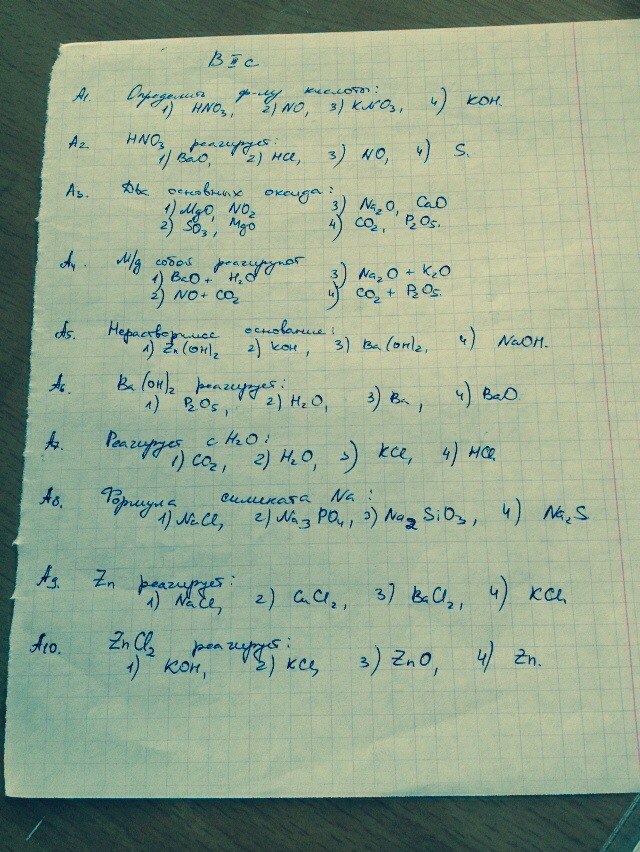 В II с
А1. Определить ф-лу кислоты:
1) HNO3, 2) NO, 3) KNO3, 4) KOH.
А2 HNO3 реагирует:
1) BaO, 2) HCl, 3) NO, 4) S.
А3. Два основных оксида:
1) MgO, NO2 3) Na2O, CaO
2) SO3, MgO 4) CO2, P2O5.
А4. М/д собой реагируют
1) BaO + H2O 3) Na2O + K2O
2) NO + CO2 4) CO2 + P2O5.
А5. Нерастворимое основание:
1) Zn(OH)2 2) KOH, 3) Ba(OH)2, 4) NaOH.
А6. Ba(OH)2 реагирует:
1) P2O5, 2) H2O, 3) Ba, 4) BaO
А7. Реагирует с H2O:
1) CO2, 2) H2O, 3) KCl, 4) HCl
А8. Формула силиката Na:
1) NaCl, 2) Na3PO4, 3) Na2SiO3, 4) Na2S
А9. Zn реагирует:
1) NaCl, 2) CuCl2, 3) BaCl2, 4) KCl
А10. ZnCl2 реагирует:
1) KOH, 2) KCl, 3) ZnO, 4) Zn.